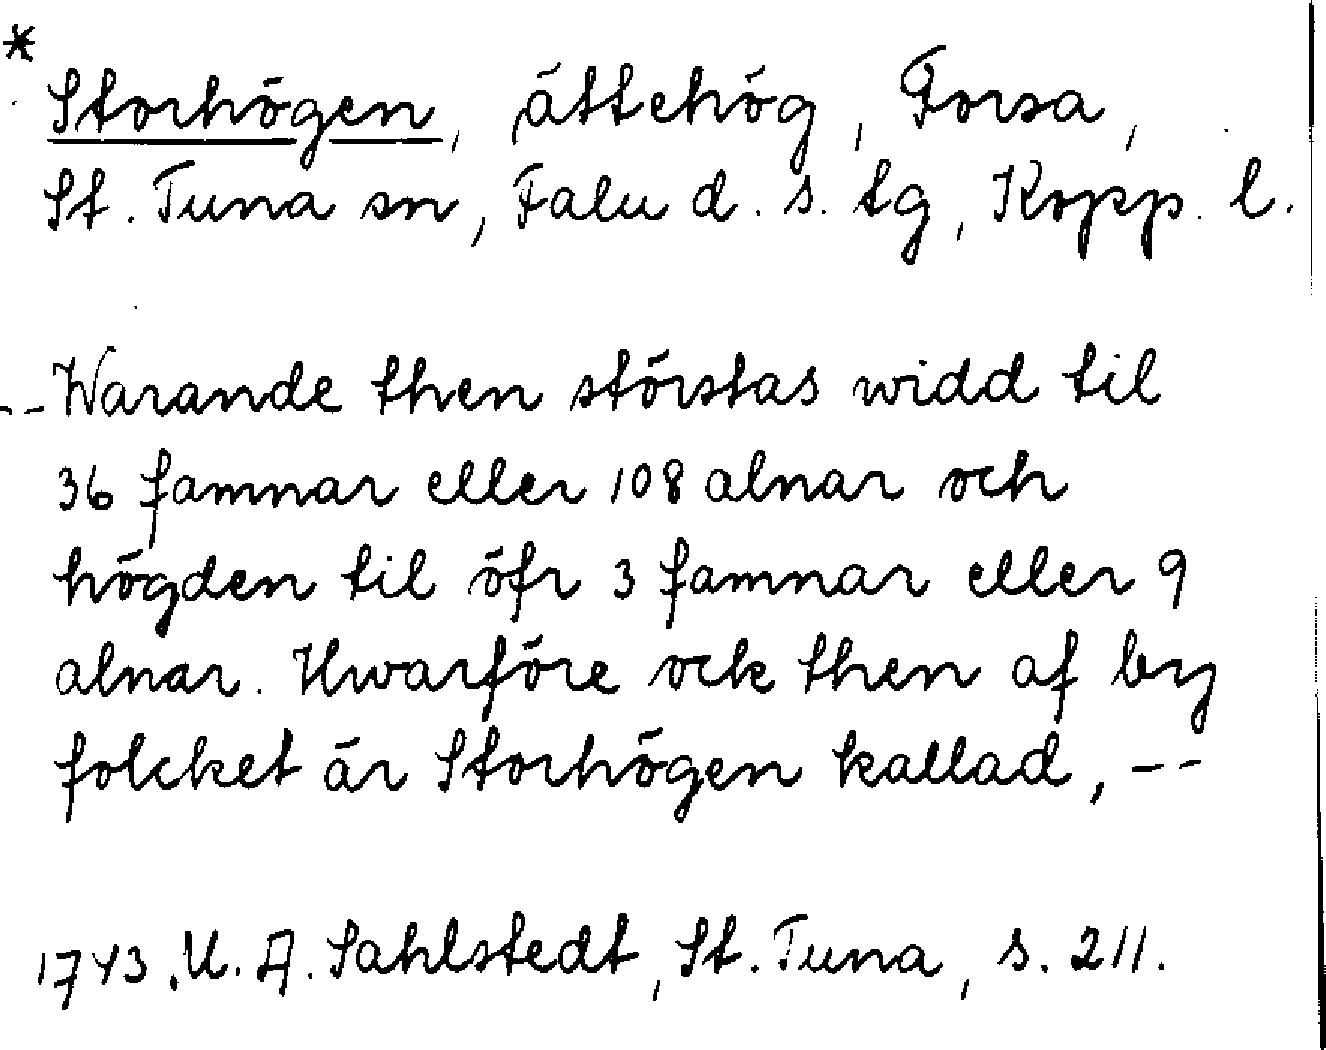 *
Storhögen, ättehög, Forsa,
St. Tuna sn, Falu d. s. tg, Kopp. l.
-- Warande then störstas widd til
36 famnar eller 108 alnar och
högden til öfr 3 famnar eller 9
alnar. Hwarföre ock then af by
folcket är Storhögen kallad, --
1743. U. A. Sahlstedt, St. Tuna, s. 211.